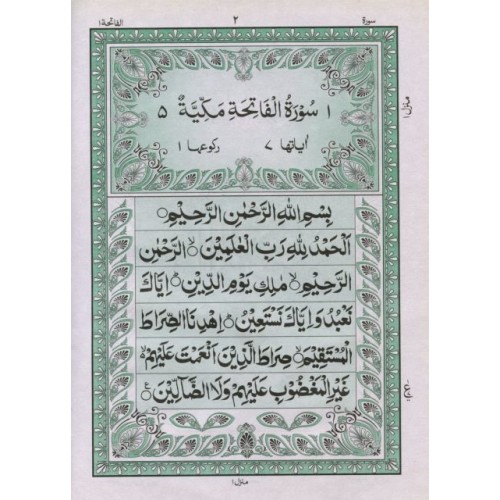 سورة ٢ الفاتحة ١
منزل ١
١ سُوْرَةُ الْفَاتِحَةِ مَكِّيَّةٌ ٥
اٰيَاتُهَا ٧ رُكُوْعُهَا ١
بِسْمِ اللّٰهِ الرَّحْمٰنِ الرَّحِيْمِ ○
اَلْحَمْدُ لِلّٰهِ رَبِّ الْعٰلَمِيْنَ ۙ الرَّحْمٰنِ
الرَّحِيْمِ ۙ مٰلِكِ يَوْمِ الدِّيْنِ ؕ اِيَّاكَ
نَعْبُدُ وَاِيَّاكَ نَسْتَعِيْنُ ؕ اِهْدِنَا الصِّرَاطَ
الْمُسْتَقِيْمَ ۙ صِرَاطَ الَّذِيْنَ اَنْعَمْتَ عَلَيْهِمْ ۙ
غَيْرِ الْمَغْضُوْبِ عَلَيْهِمْ وَلَا الضَّآلِّيْنَ ۧ
منزل ١